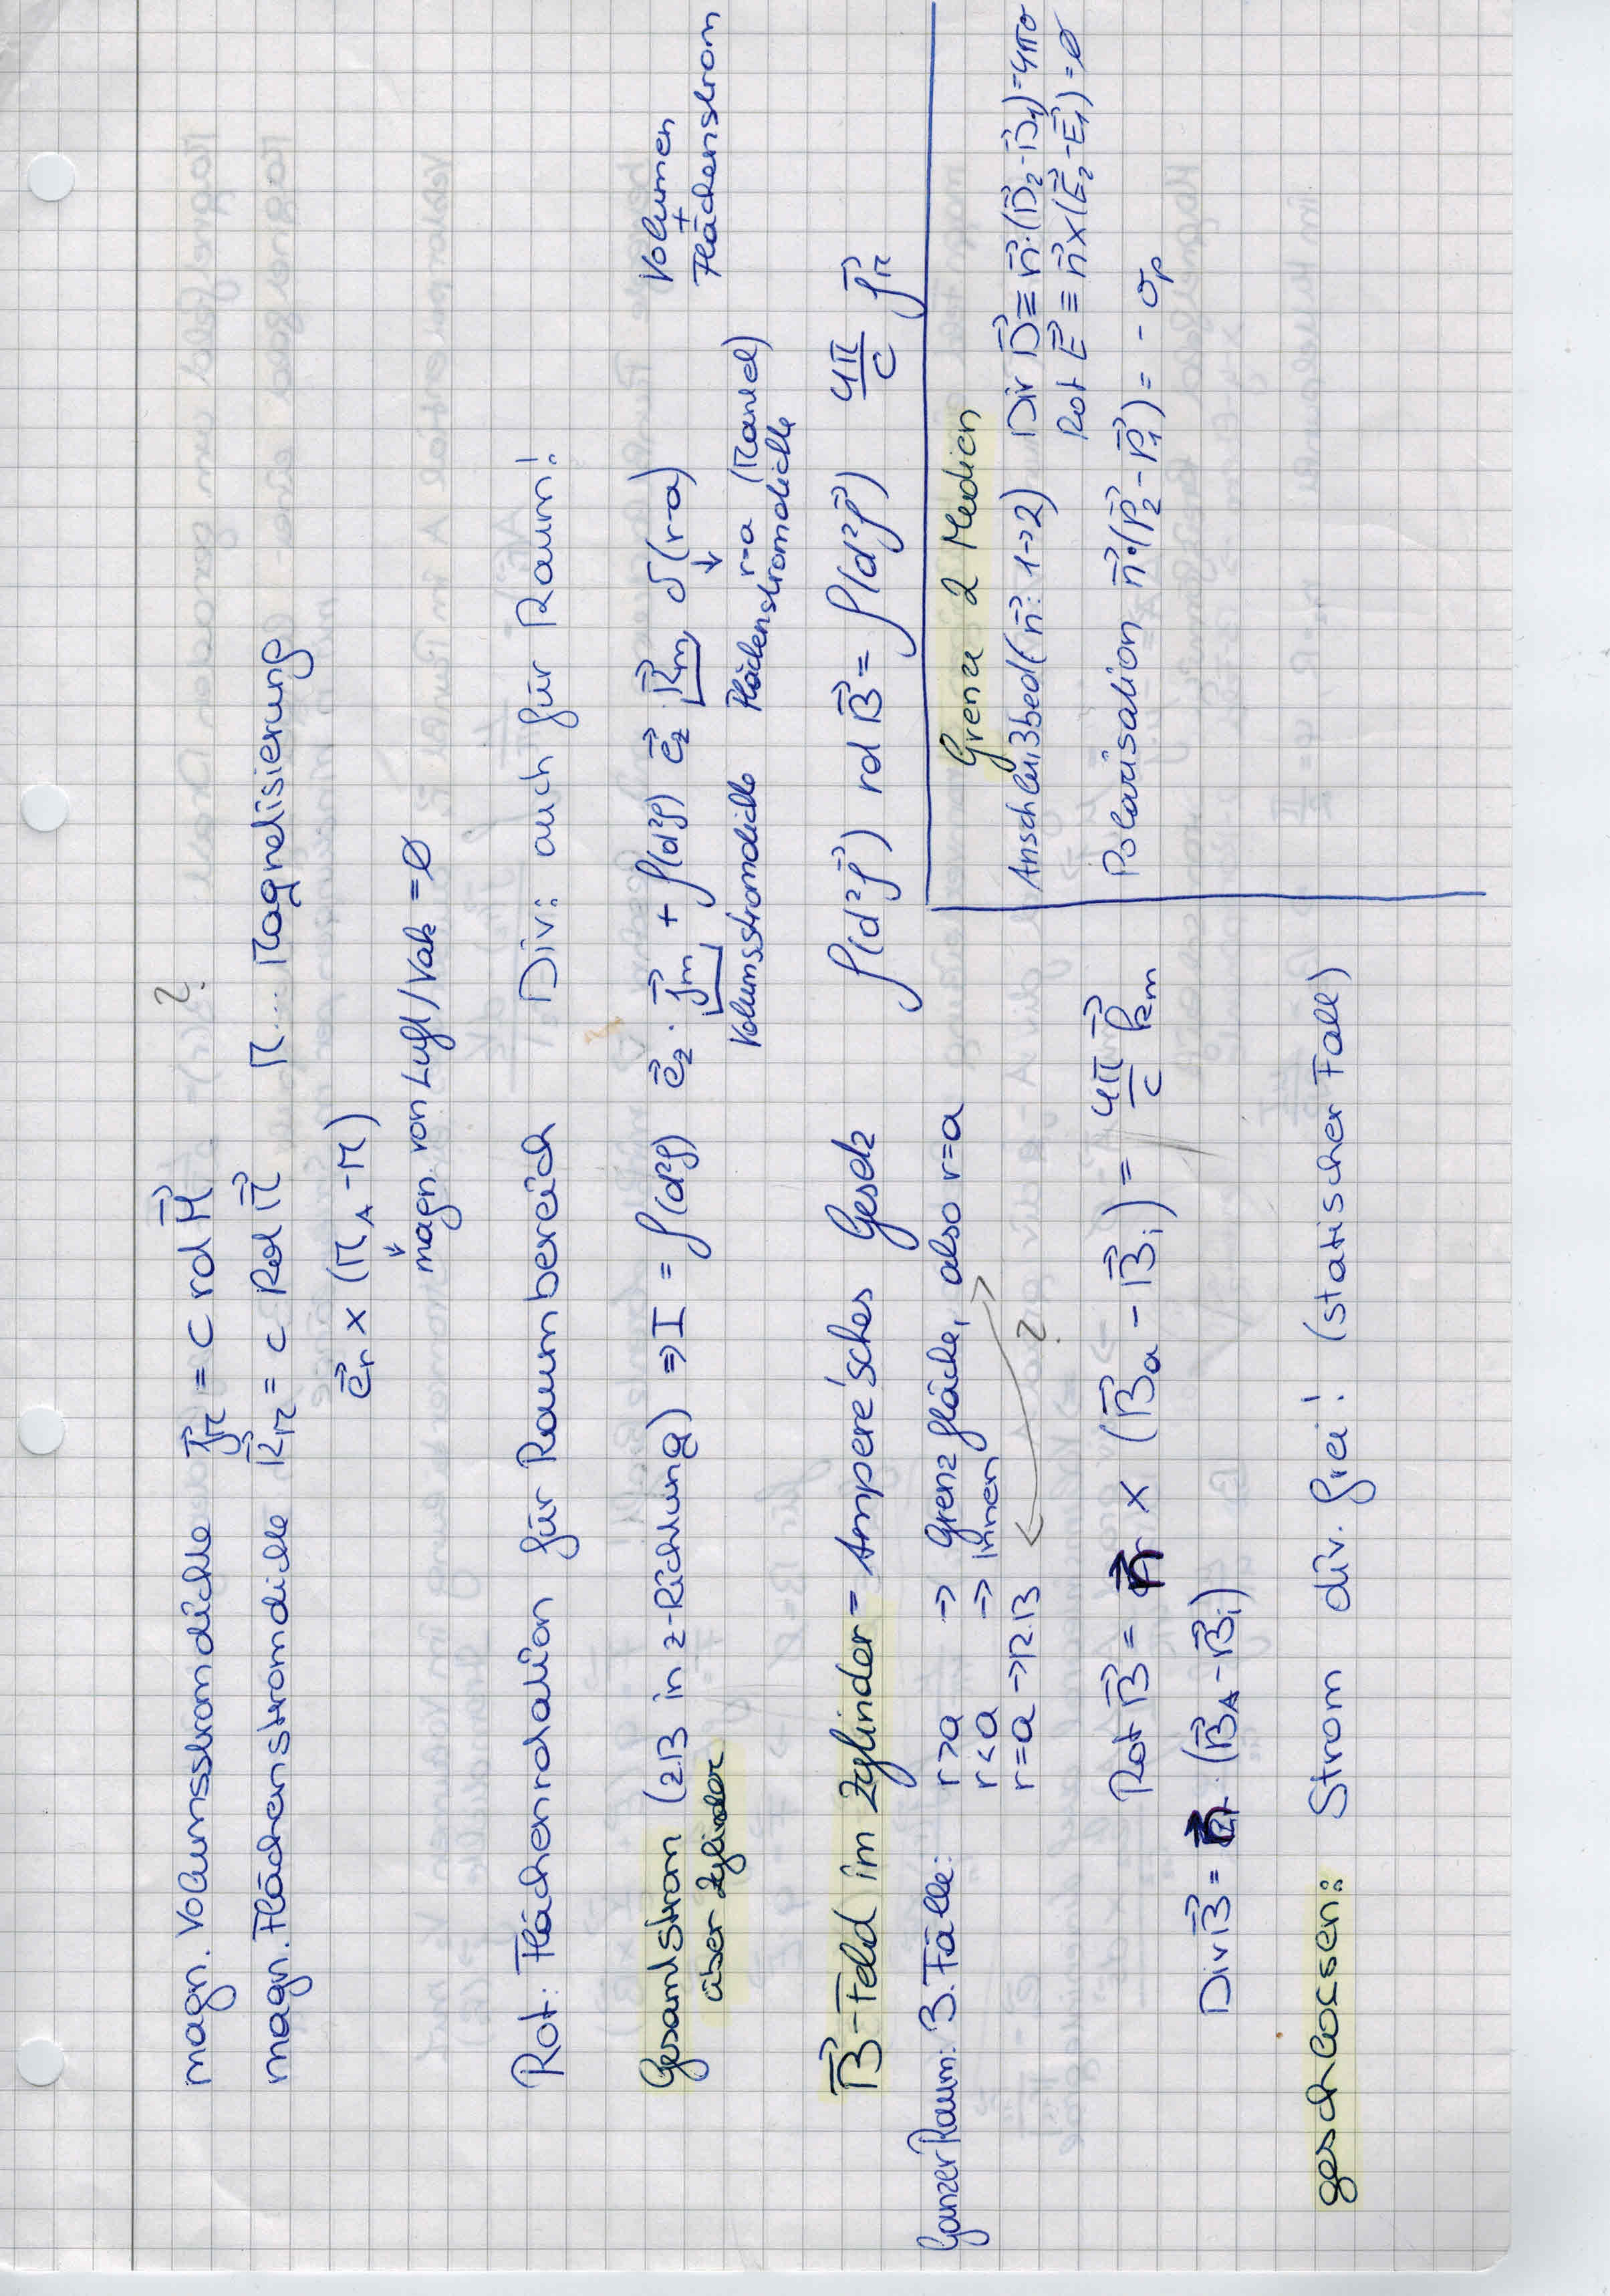 magn. Volumsstromdichte J⃗_M = c rot M⃗ ?
magn. Flächenstromdichte K⃗_M = c Rot M⃗ M... Magnetisierung
e⃗_r × (M_A - M)
↓
magn. von Luft/Vak = Ø
Rot: Flächenrotation für Raumbereich Div: auch für Raum!
Gesamtstrom (z.B in z-Richtung) ⇒ I = ∫(d²f) e⃗_z · j⃗_m + ∫(d²f) e⃗_z K⃗_m δ(r-a)
über Zylinder
Volumsstromdichte Flächenstromdichte
↓
r=a (Rand)
Volumen
+
Flächenstrom
B⃗-Feld im Zylinder = Ampere'sches Gesetz ∫(d²f⃗) rot B⃗ = ∫(d²f⃗) 4π/c j⃗_M
Ganzer Raum: 3. Fälle: r>a ⇒ Grenzfläche, also r=a
r<a ⇒ innen
r=a → R.B ?
Rot B⃗ = n⃗ × (B⃗_a - B⃗_i) = 4π/c k⃗_m
Div B⃗ = n⃗ · (B⃗_A - B⃗_i)
geschlossen: Strom div. frei! (statischer Fall)
Grenze 2 Medien
Anschlußbed (n⃗: 1→2) Div D⃗ ≡ n⃗·(D⃗_2 - D⃗_1) = 4πσ
Rot E⃗ ≡ n⃗×(E⃗_2 - E⃗_1) = Ø
Polarisation n⃗·(P⃗_2 - P⃗_1) = - σ_p